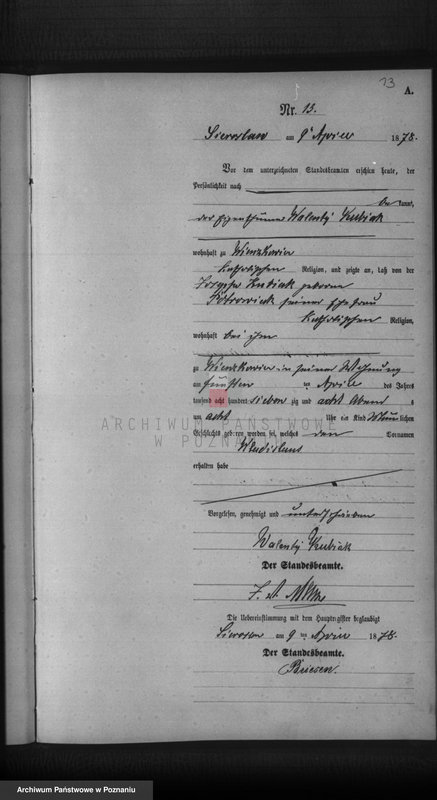 13
A.
Nr. 13.
am 9 ten April 1878.
Vor dem unterzeichneten Standesbeamten erschien heute, der
Persönlichkeit nach
be kannt,
der Eigenthümer Walenty Kubiak
wohnhaft zu
katholischen Religion, und zeigte an, daß von der
Kubiak geborene
seiner Ehefrau
katholischen Religion,
wohnhaft bei ihm
zu in seiner Wohnung
am fünften ten April des Jahres
tausend acht hundert sieben zig und acht Abend s
um acht Uhr ein Kind männlichen
Geschlechts geboren worden sei, welches den Vornamen
Wladislaus
erhalten habe
Vorgelesen, genehmigt und unterschrieben
Walenty Kubiak
Der Standesbeamte.
Die Uebereinstimmung mit dem Hauptregister beglaubigt
am 9 ten April 1878.
Der Standesbeamte.
Briesen.
ARCHIWUM PAŃSTWOWE
W POZNANIU
Archiwum Państwowe w Poznaniu